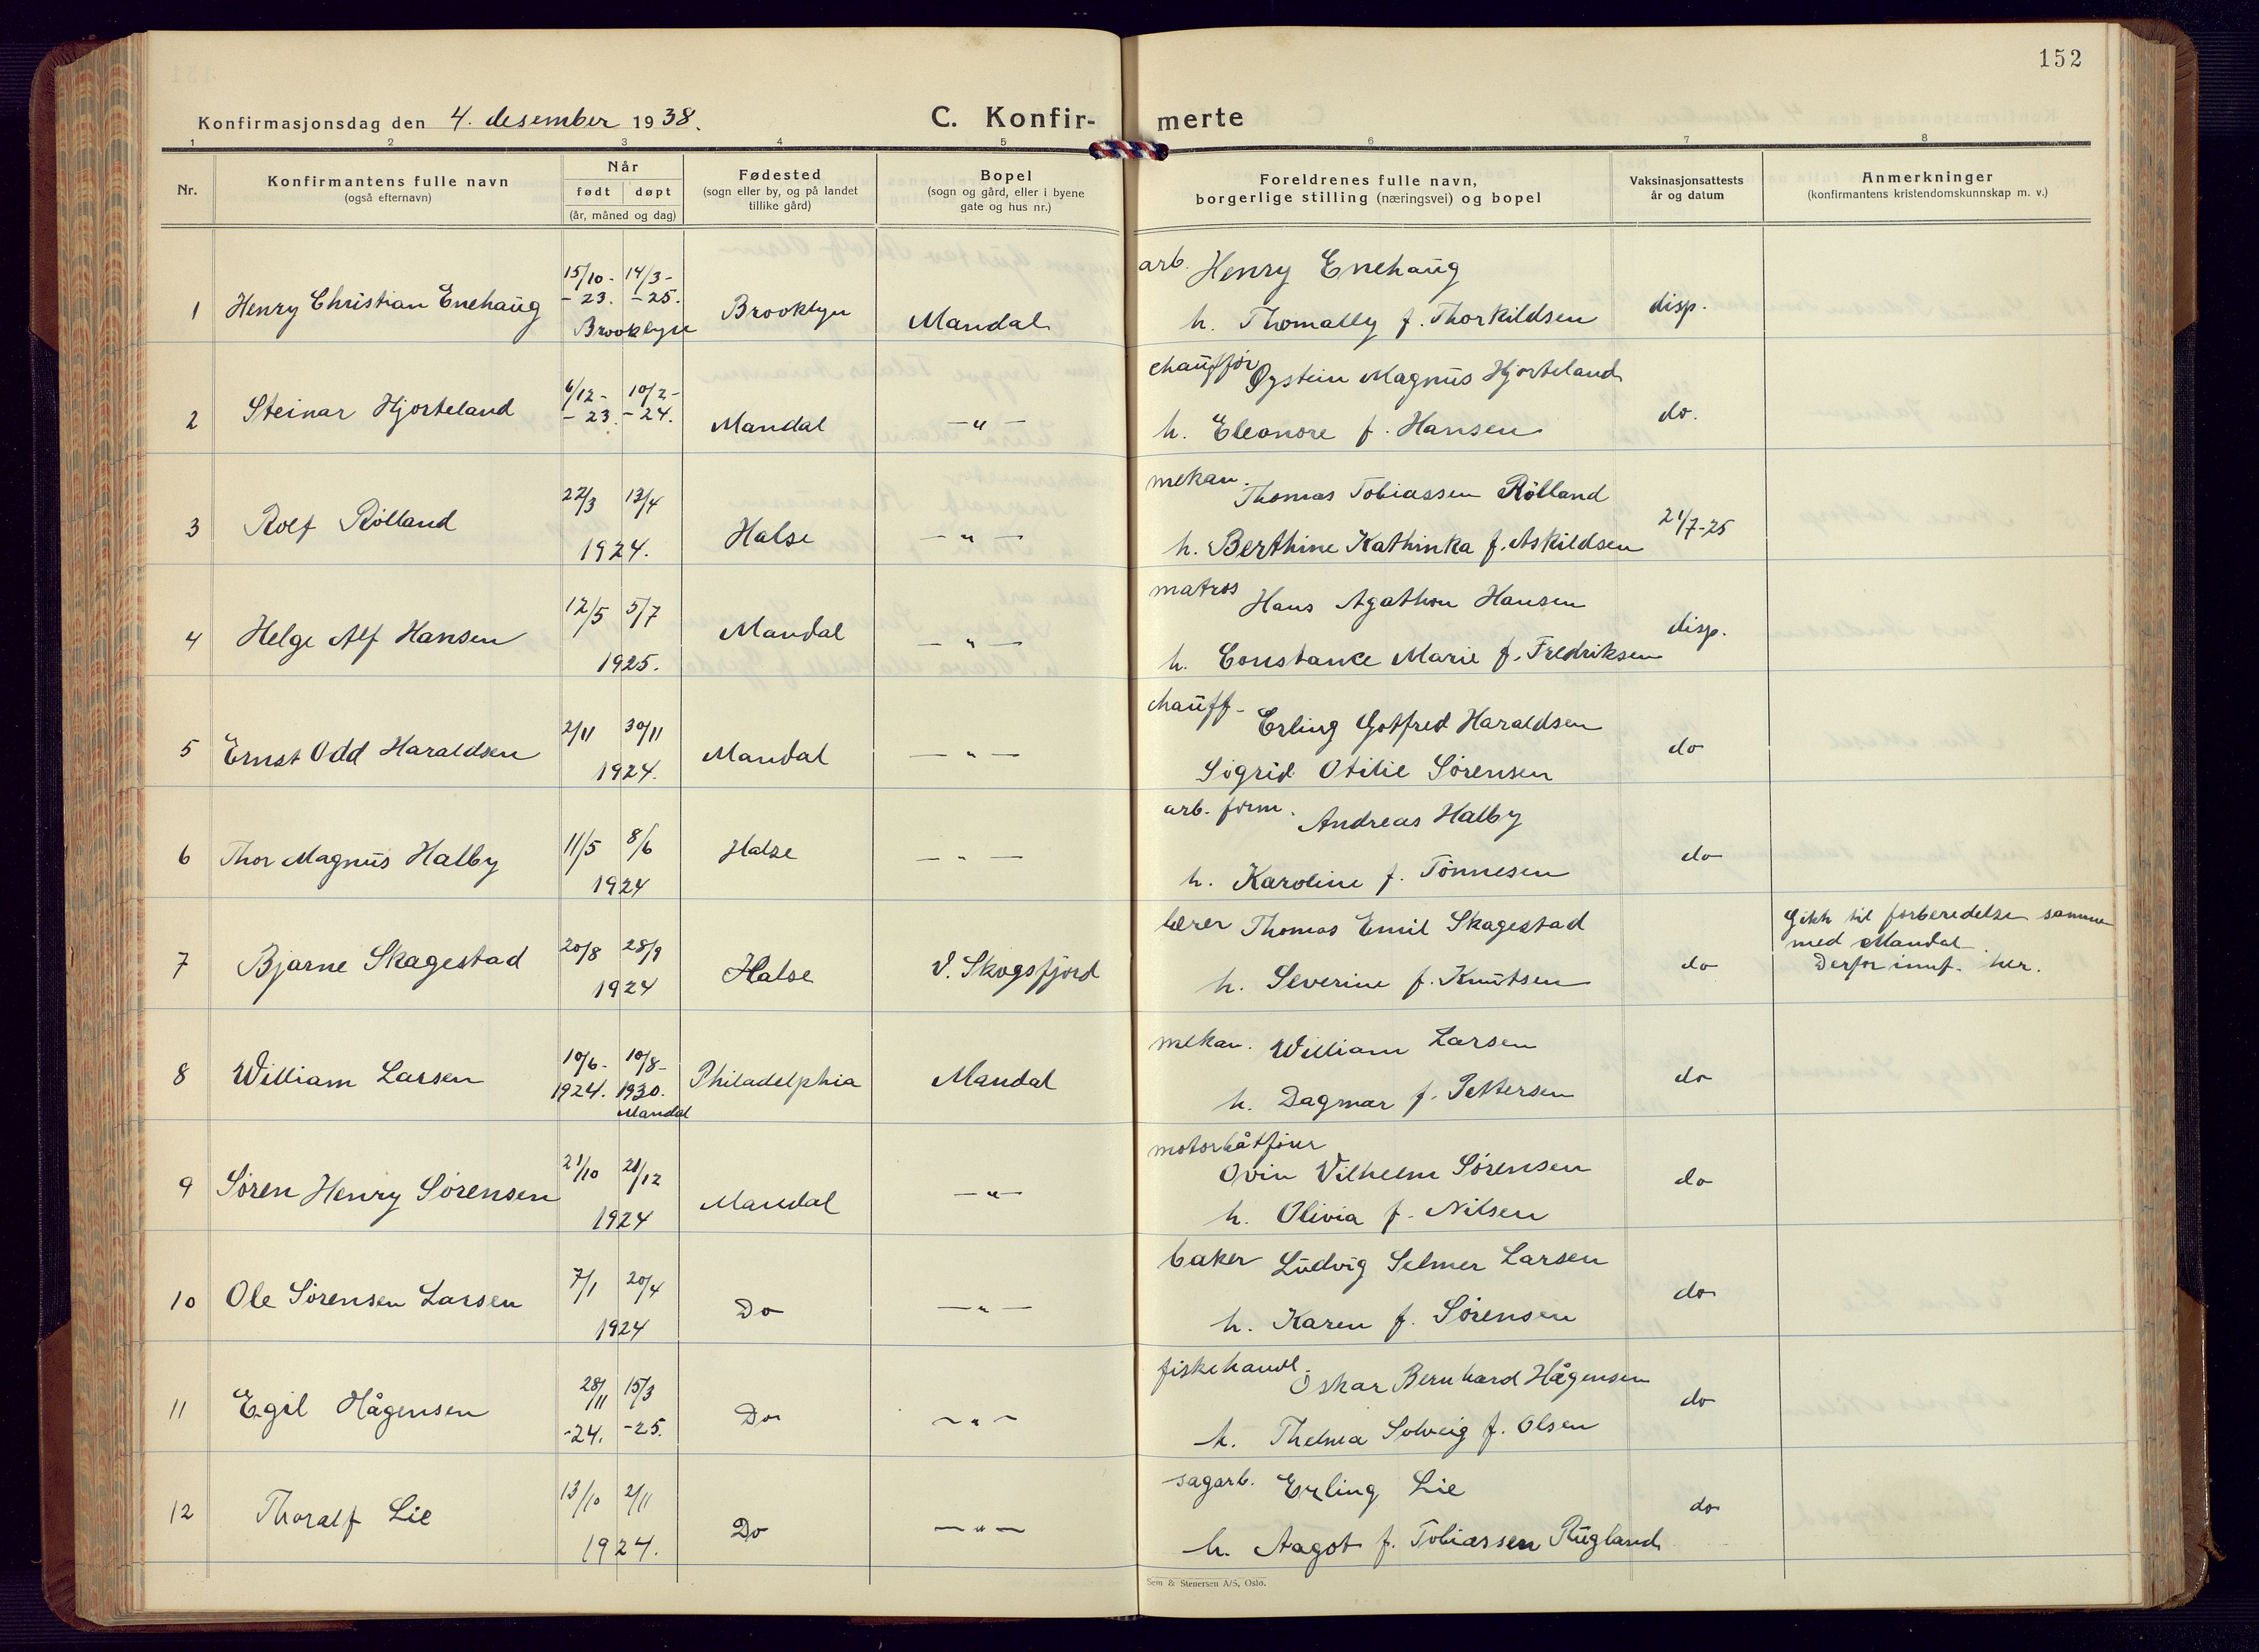 152
Konfirmasjonsdag den 4. desember 1938.
C. Konfir- merte
1 2 3 4 5 6 7 8
Nr.
Konfirmantens fulle navn
(også efternavn)
Når
født døpt
(år, måned og dag)
Fødested
(sogn eller by, og på landet
tillike gård)
Bopel
(sogn og gård, eller i byene
gate og hus nr.)
Foreldrenes fulle navn,
borgerlige stilling (næringsvei) og bopel
Vaksinasjonsattests
år og datum
Anmerkninger
(konfirmantens kristendomskunnskap m. v.)
arb. Henry Enehaug
15/10- 14/3-
1 Henry Christian Enehaug -23. -25. Brooklyn Mandal disp.
Brooklyn
h. Thomally f. Thorkildsen
chauffør Øystein Magnus Hjorteland
6/12- 10/2-
2 Steinar Hjorteland -23. -24. Mandal -"- do.
h. Eleonore f. Hansen
mekan. Thomas Tobiassen Rølland
22/3 13/4
3 Rolf Rølland 1924. Halse -"- 21/7-25
h. Berthine Kathinka f. Askildsen
matros Hans Agathon Hansen
12/5 5/7
4 Helge Alf Hansen 1925. Mandal -"- disp.
h. Constance Marie f. Fredriksen
chauff- Erling Gotfred Haraldsen
2/11 30/11
5 Ernst Odd Haraldsen 1924. Mandal -"- do
Sigrid Otilie Sørensen
arb. form. Andreas Halby
11/5 8/6
6 Thor Magnus Halby 1924 Halse -"- do
h. Karoline f. Tønnesen
lærer Thomas Emil Skagestad
Gikk til forberedelse samme
med Mandal.
Derfor innf. her.
20/8 28/9
7 Bjarne Skagestad 1924 Halse V. Skogsfjord do
h. Severine f. Knutsen
mekan. William Larsen
10/6- 10/8-
8 William Larsen 1924. 1930. Philadelphia Mandal do
Mandal
h. Dagmar f. Pettersen
motorbåtfører
Ovin Vilhelm Sørensen
21/10 21/12
9 Søren Henry Sørensen 1924 Mandal -"- do
h. Olivia f. Nilsen
baker Ludvig Selmer Larsen
7/1 20/4
10 Ole Sørensen Larsen 1924 Do -"- do
h. Karen f. Sørensen
fiskehandl. Oskar Bernhard Hågensen
28/11 15/3
11 Egil Hågensen -24. -25. Do -"- do
h. Thelma Solveig f. Olsen
sagarb. Erling Lie
13/10 2/11
12 Thoralf Lie 1924. Do -"- do
h. Aagot f. Tobiassen Rugland
Sem & Stenersen A/S, Oslo.